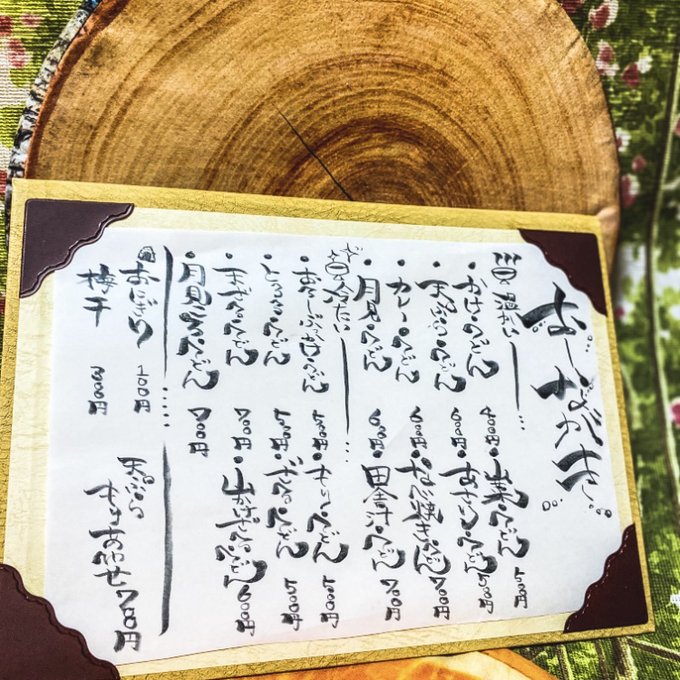 お・しながき
温かい
・かけ・うどん 400円 山菜・うどん 500円
・天ぷら・うどん 600円 あさり・うどん 500円
・カレー・うどん 600円 うどん 700円
・月見・うどん 田舎汁うどん 700円
冷たい
ぶっかけうどん もりうどん
・とろろ・うどん ざるうどん
・天ざる・うどん 700円 山かけざるうどん 600円
・月見ざるうどん 700円
おにぎり 100円 天ぷら
梅干 300円 もりあわせ 700円